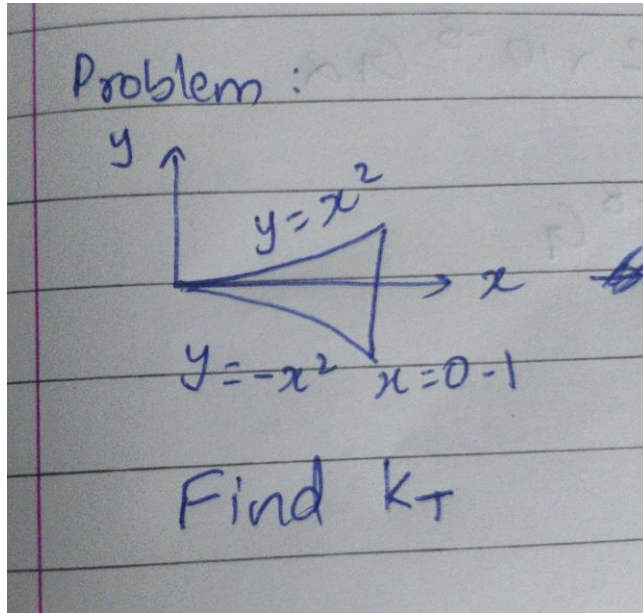 Problem :
y
y = x²
x
y = -x² x = 0 - 1
Find K_T